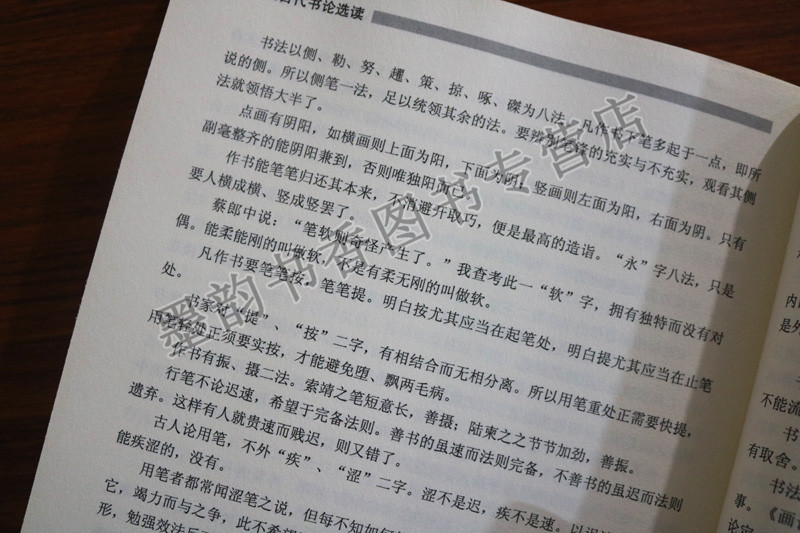 古代书论选读
书法以侧、勒、努、趯、策、掠、啄、磔为八法。凡作书下笔多起于一点，即所
说的侧。所以侧笔一法，足以统领其余的法。要辨别毫锋的充实与不充实，观看其侧
法就领悟大半了。
点画有阴阳，如横画则上面为阳，下面为阴；竖画则左面为阳，右面为阴。只有
副毫整齐的能阴阳兼到，否则唯独阳而已。
作书能笔笔归还其本来，不消避升取巧，便是最高的造诣。“永”字八法，只是
要人横成横、竖成竖罢了。
蔡郎中说：“笔软则奇怪产生了。”我查考此一“软”字，拥有独特而没有对
偶。能柔能刚的叫做软，不是有柔无刚的叫做软。
凡作书要笔笔按，笔笔提。明白按尤其应当在起笔处，明白提尤其应当在止笔
处。
书家对“提”、“按”二字，有相结合而无相分离。所以用笔重处正需要快提，
用笔轻处正须要实按，才能避免堕、飘两毛病。
作书有振、摄二法。索靖之笔短意长，善摄；陆柬之之节节加劲，善振。
行笔不论迟速，希望于完备法则。善书的虽速而法则完备，不善书的虽迟而法则
遗弃。这样有人就贵速而贱迟，则又错了。
古人论用笔，不外“疾”、“涩”二字。涩不是迟，疾不是速。以迟
能疾涩的，没有。
用笔者都常闻涩笔之说，但每不知如何
它，竭力而与之争，此不希望
形，勉强效法
内
是外
不能流
书
有取舍。
书法
事。
《画
论
墨韵书香图书专营店